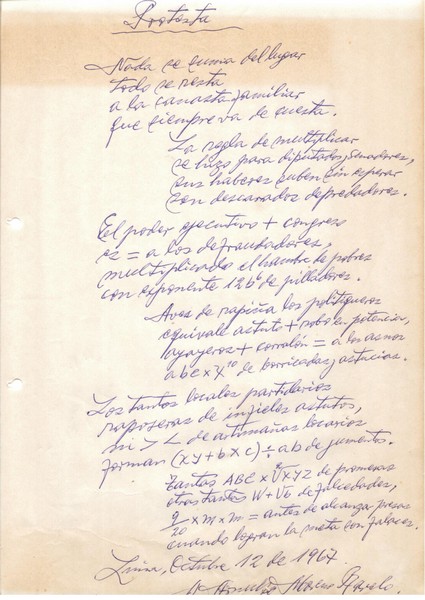 Protesta
Nada se suma del lugar
todo se resta
a la canasta familiar
que siempre va de cuesta.
La regla de multiplicar
se hizo para diputados, senadores,
sus haberes suben sin esperar
son descarados depredadores.
El poder ejecutivo + congreso
es = a los defraudadores,
multiplicado el hambre de pobres
con exponente 12b de pilladores.
Aves de rapiña los politiqueros
equivale astuto + robo en potencia,
ayayeros + corralón = a los asnos
abc x y¹⁰ de borricadas, astucias.
Los tantos locales partidarios
raposeras de infieles astutos,
ni > < de artimañas
forman (xy + b x c) ÷ ab de jumentos.
Tantas ABC x XYZ de promesas
otras tantas W + V6 de falsedades,
x m x m = antes de alcanzar presas
cuando logran la meta con falacez.
Lima, Octubre 12 de 1967.